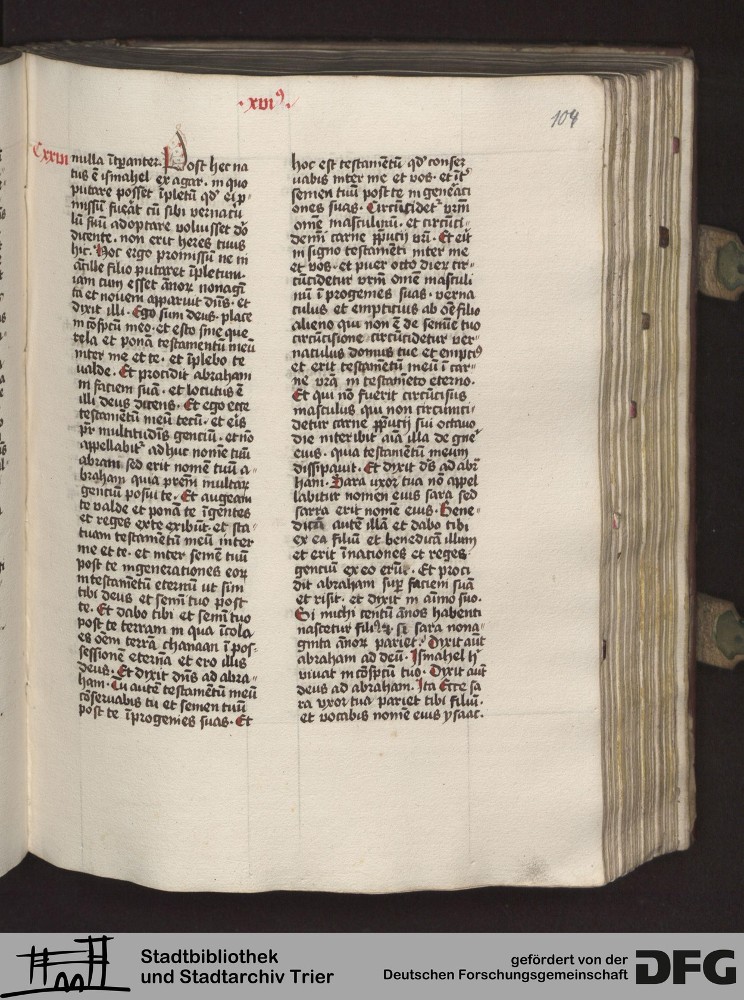 ·xvi⁹·
104
Cxxvi
nulla ĩtp̃anter. Post hec na
tus ẽ ismahel ex agar. in quo
putare posset ĩpletũ qđ ei p̲-
missũ fuẽat cũ sibi vernacu
lũ suũ adoptare voluisset dõ
dicente. non erit heres tuus
hic. Hoc ergo promissũ ne in
ãcille filio putaret ĩpletum.
iam cum esset ãnoꝝ nonagĩ
ta et novem apparuit dñs. et
dixit illi. Ego sum deus. place
in cõspc̃tu meo. et esto sine que
rela et ponã testamentũ meũ
inter me et te. et ĩplebo te
valde. Et procidit abraham
in faciem suã. et locutus ẽ
illi deus dicens. Et ego ecce
testamẽtũ meũ tecũ. et eis
pr̃ multitudĩs genciũ. et nõ
appellabit᷒ ad huc nomẽ tuũ
abram sed erit nomẽ tuũ a-
braham quia prẽm multaꝝ
genciũ posui te. Et augeam
te valde et ponã te ĩ gentes
et reges ex te exibũt. et sta-
tuam testamẽtũ meũ inter
me et te. et inter semẽ tuũ
post te in generationes eoꝝ
in testamẽtũ eternũ ut sim
tibi deus et semĩ tuo post
te. Et dabo tibi et semĩ tuo
post te terram in qua ĩcola
es oẽm terrã chanaan ĩ pos-
sessionẽ eternã et ero illis
deus. Et dixit dñs ad abra-
ham. Tu autẽ testamẽtũ meũ
cõservabis tu et semen tuũ
post te ĩ progenies suas. Et
hoc est testamẽtũ qđ conser
vabis inter me et vos. et ĩt᷒
semen tuũ post te in gene̾ati
ones suas. Circũcidet᷒ vr̃m
om̃e masculinũ. et circũci-
demĩ carne p̲pucij vr̃i. Et eĩt
in signo testamẽti inter me
et vos. et puer octo dieꝝ cir-
cũcidetur vr̃m om̃e masculi
nũ ĩ progenies suas. verna
culus et empticius ab oẽ filio
alieno qui non ẽ de semĩe tuo
circũcisione circũcidetur ver-
naculus domus tue et empti⁹
et erit testamẽtũ meũ ĩ car-
ne vr̃a in testamẽto eterno.
Et qui nõ fuerit circũcisus
masculus qui non circũnci-
detur carne p̲pucij sui octavo
die interibit aĩa illa de gñe
eius. quia testamẽtũ meum
dissipavit. Et dixit dñs ad abr̃
ham. Sara uxor tua nõ appel
labitur nomen eius sara sed
sarra erit nomẽ eius. Bene-
dicã autẽ illã et dabo tibi
ex ea filiũ et benedicã illum
et erit ĩ nationes et reges
genciũ ex eo erũt. Et proci
dit abraham sup̲ faciem suã
et risit. et dixit in aĩmo suo.
Si michi centũ ãnos habenti
nascetur fili⁹ ꝛ si sara nona-
ginta ãnoꝝ pariet. Dixit aũt
abraham ad deũ. Ismahel hĩc
vivat in cõspc̃tu tuo. Dixit aũt
deus ad abraham. Ita Ecce sa
ra vxor tua pariet tibi filiũ.
et vocabis nomẽ eius ysaac.
Stadtbibliothek
und Stadtarchiv Trier
gefördert von der
Deutschen Forschungsgemeinschaft
DFG